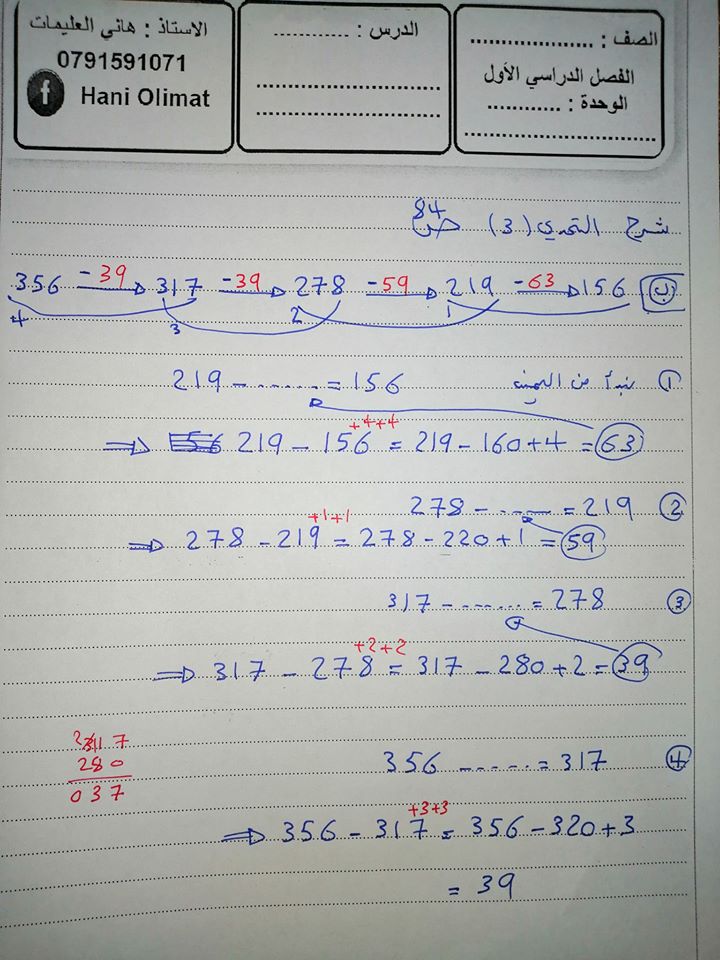 الصف : ....................
الفصل الدراسي الأول
الوحدة : ............
الدرس : ............
الاستاذ : هاني العليمات
0791591071
f Hani Olimat
شرح التحدي (3) ص 84
ب 356 -39 317 -39 278 -59 219 -63 156
4 3 2 1
① نبدأ من اليمين 219 - ........ = 156
⇒ 219 - 156 +4 +4 = 219 - 160 + 4 = 63
② 278 - ........ = 219
⇒ 278 - 219 +1 +1 = 278 - 220 + 1 = 59
③ 317 - ........ = 278
⇒ 317 - 278 +2 +2 = 317 - 280 + 2 = 39
④ 356 - ........ = 317
317
280
037
⇒ 356 - 317 +3 +3 = 356 - 320 + 3
= 39